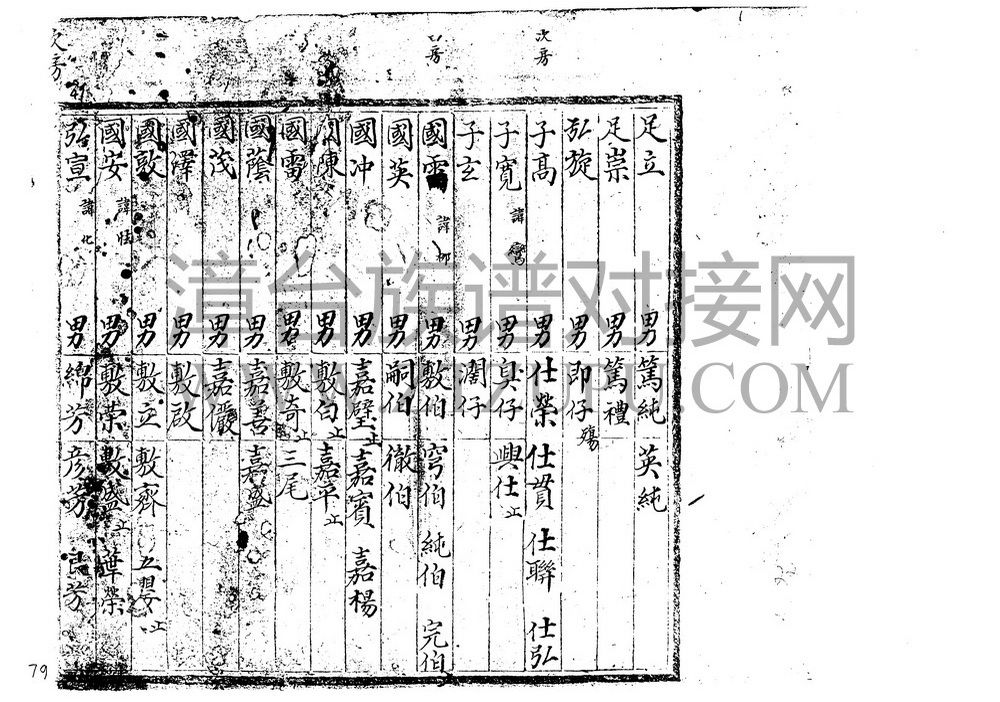 次房
足立 男 篤純 英純
足崇 男 篤禮
弘旋 男 即仔 殤
次房
子高 男 仕榮 仕貫 仕聯 仕弘
子寬 諱 男 臭仔 興仕 止
子玄 男 濶仔
房
國雷 諱柳 男 敷伯 穹伯 純伯 完伯
國英 男 嗣伯 徹伯
國冲 男 嘉璧 止 嘉賓 嘉楊
東 男 敷白 止 嘉平 止
國雷 男 敷奇 止 三尾
國蔭 男 嘉善 嘉盛
國茂 男 嘉儼
國澤 男 敷啟
國敦 男 敷立 敷齊 止
國安 諱 男 敷榮 敷盛 止 華榮
次房
弘宣 諱化 男 綿芳 彦芳 良芳
79
漳台族谱对接网